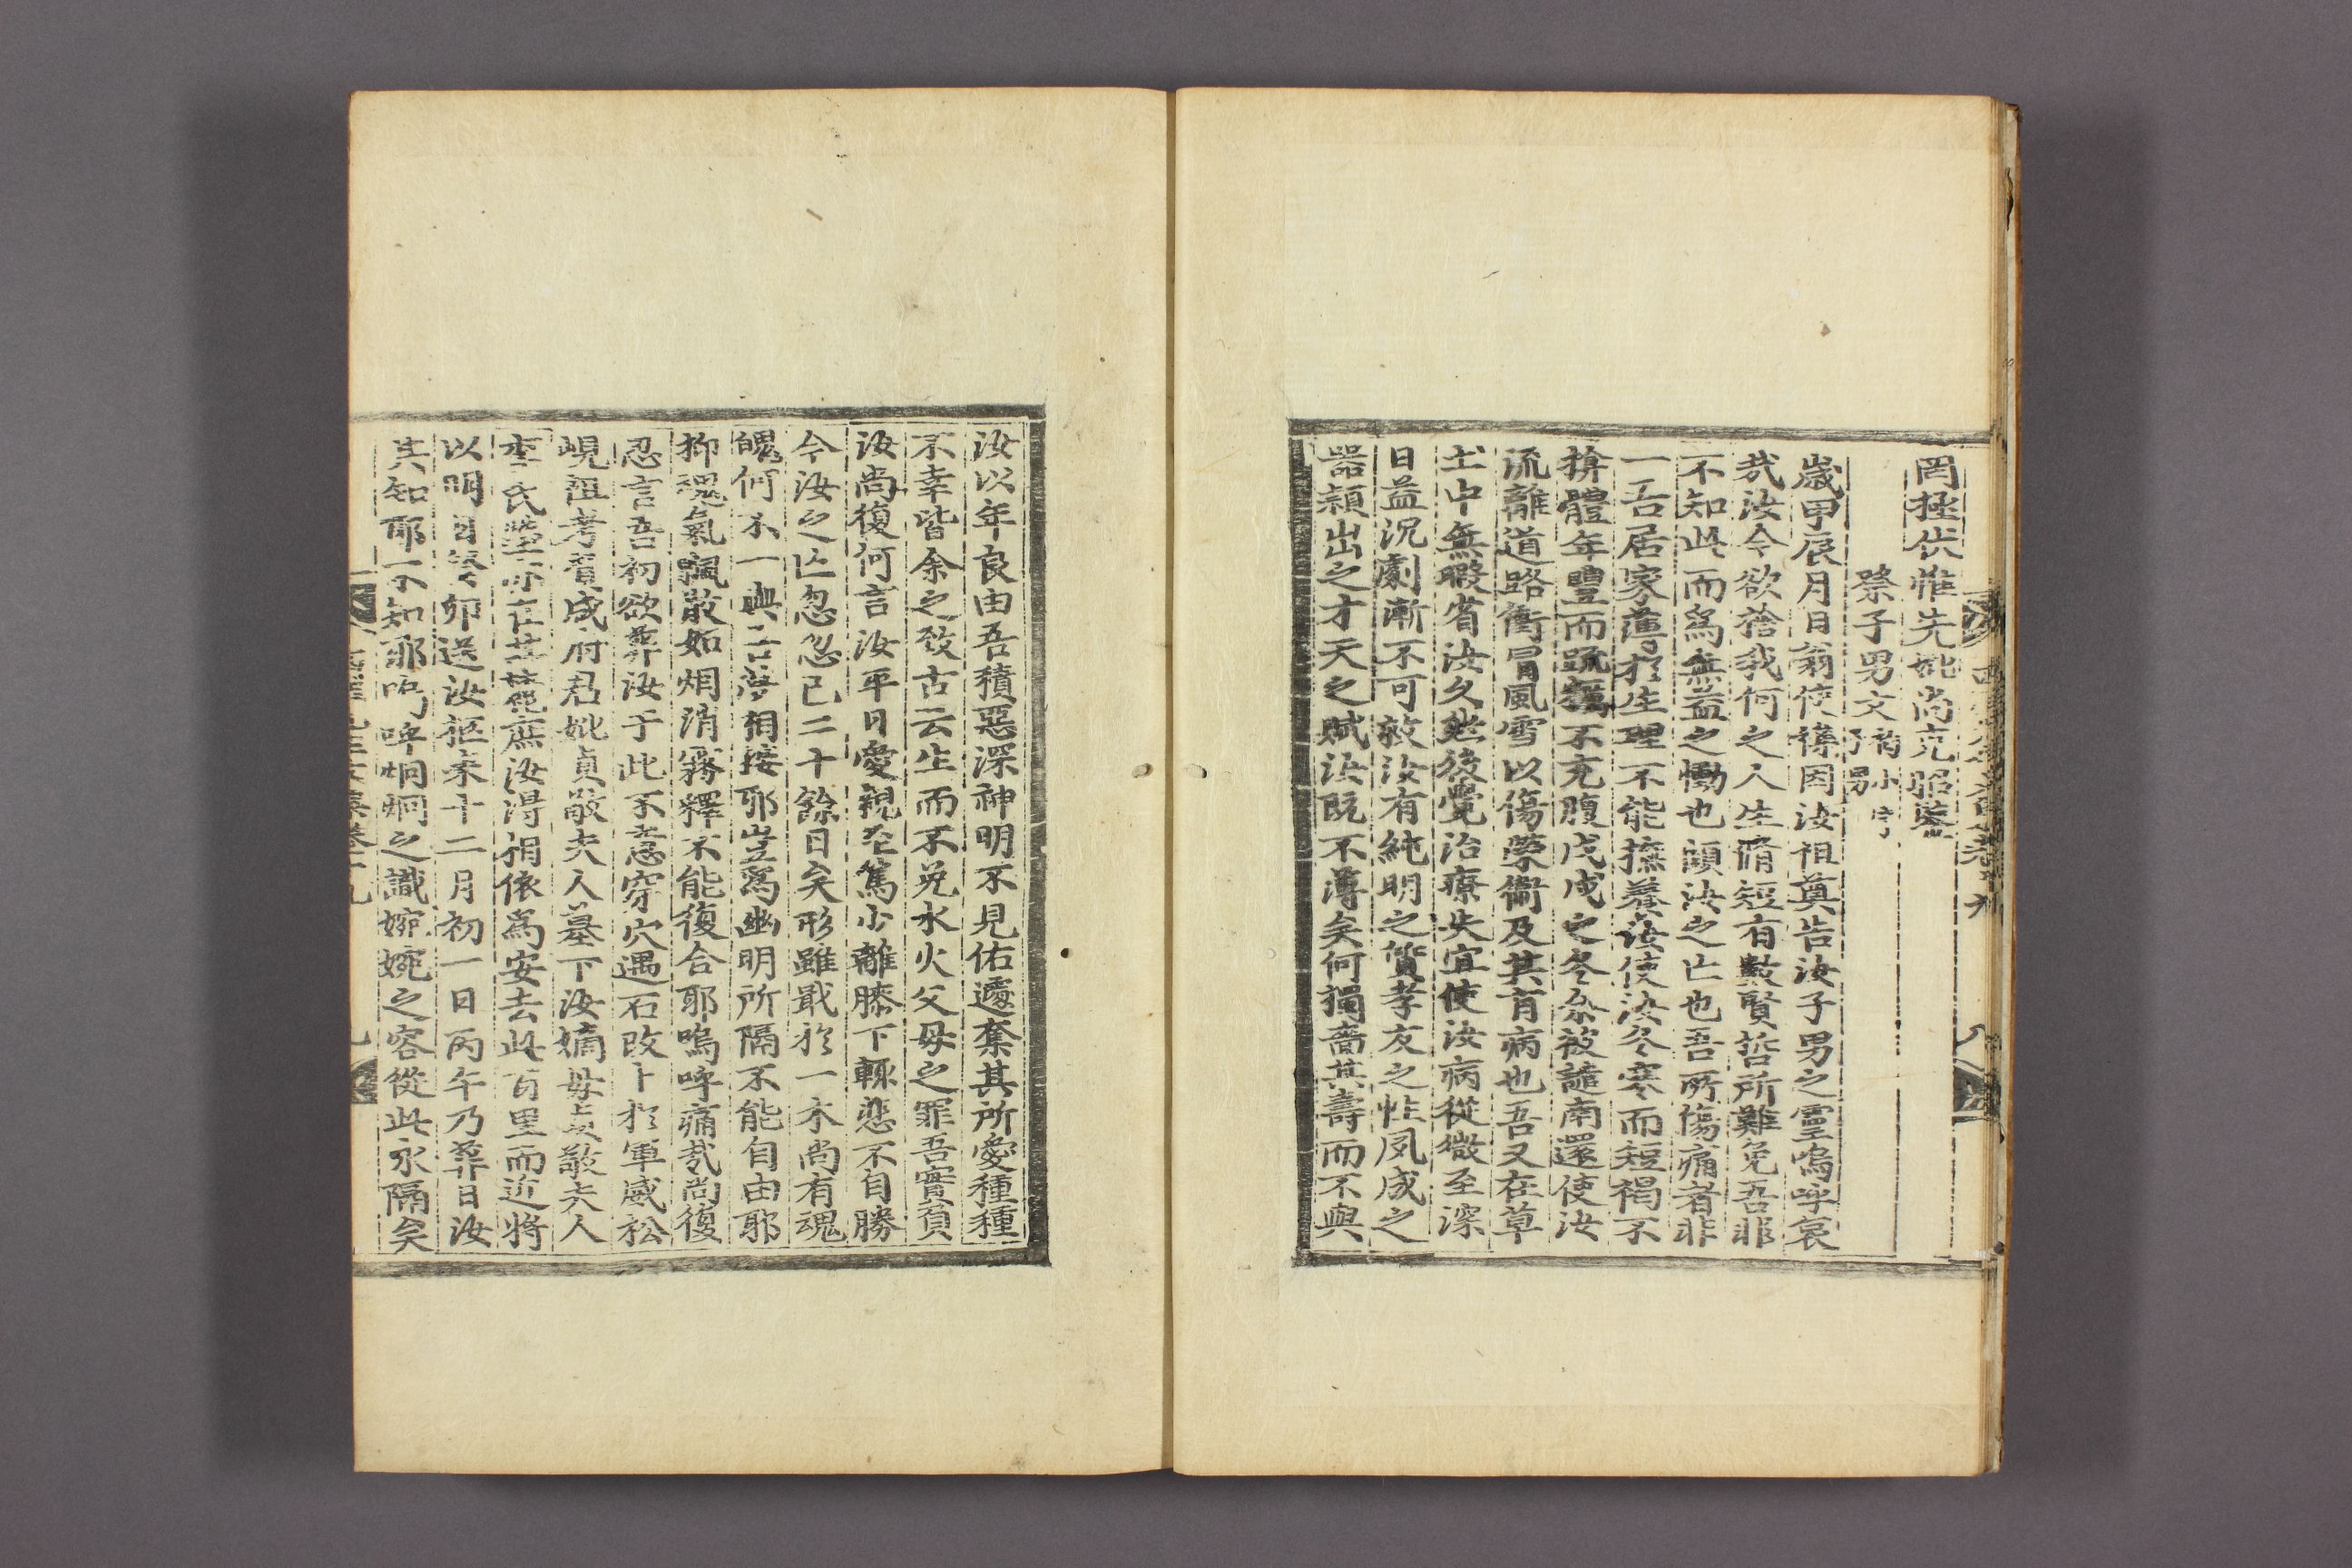 罔極伏惟先妣尚克昭鑒
祭子男文
歲甲辰月日翁使禫因汝祖奠告汝子男之靈嗚呼哀
㢤汝今欲捨我何之人生脩短有數賢哲所難免吾非
不知此而爲無益之慟也顧汝之亡也吾所傷痛者非
一吾居家薄於生理不能撫養汝使汝冬寒而短褐不
揜體年豐而蔬糲不充腹戊戌之冬余被譴南還使汝
流離道路衝冒風雪以傷榮衞及其有病也吾又在草
土中無暇省汝久然後覺治療失宜使汝病從微至深
日益沉劇漸不可救汝有純明之質孝友之性夙成之
器穎出之才天之賦汝旣不薄矣何獨嗇其壽而不與
汝以年良由吾積惡深神明不見佑遽奪其所愛種種
不幸皆余之致古云生而不免水火父母之罪吾實負
汝尚復何言汝平日愛親至篤少離膝下輒悲不自勝
今汝之亡忽忽已二十餘日矣形雖戢於一木尚有魂
魄何不一與吾夢相接耶豈爲幽明所隔不能自由耶
抑魂氣飄散如烟消霧釋不能復合耶嗚呼痛㢤尚復
忍言吾初欲葬汝于此不意穿穴遇石改卜於軍威松
峴祖考贊成府君妣貞敬夫人墓下汝嫡母貞敬夫人
李氏塋亦在其麓庶汝得相依爲安去此百里而近將
以明日癸卯送汝柩來十二月初一日丙午乃葬日汝
其知耶不知耶嗚呼烱烱之識婉婉之容從此永隔矣